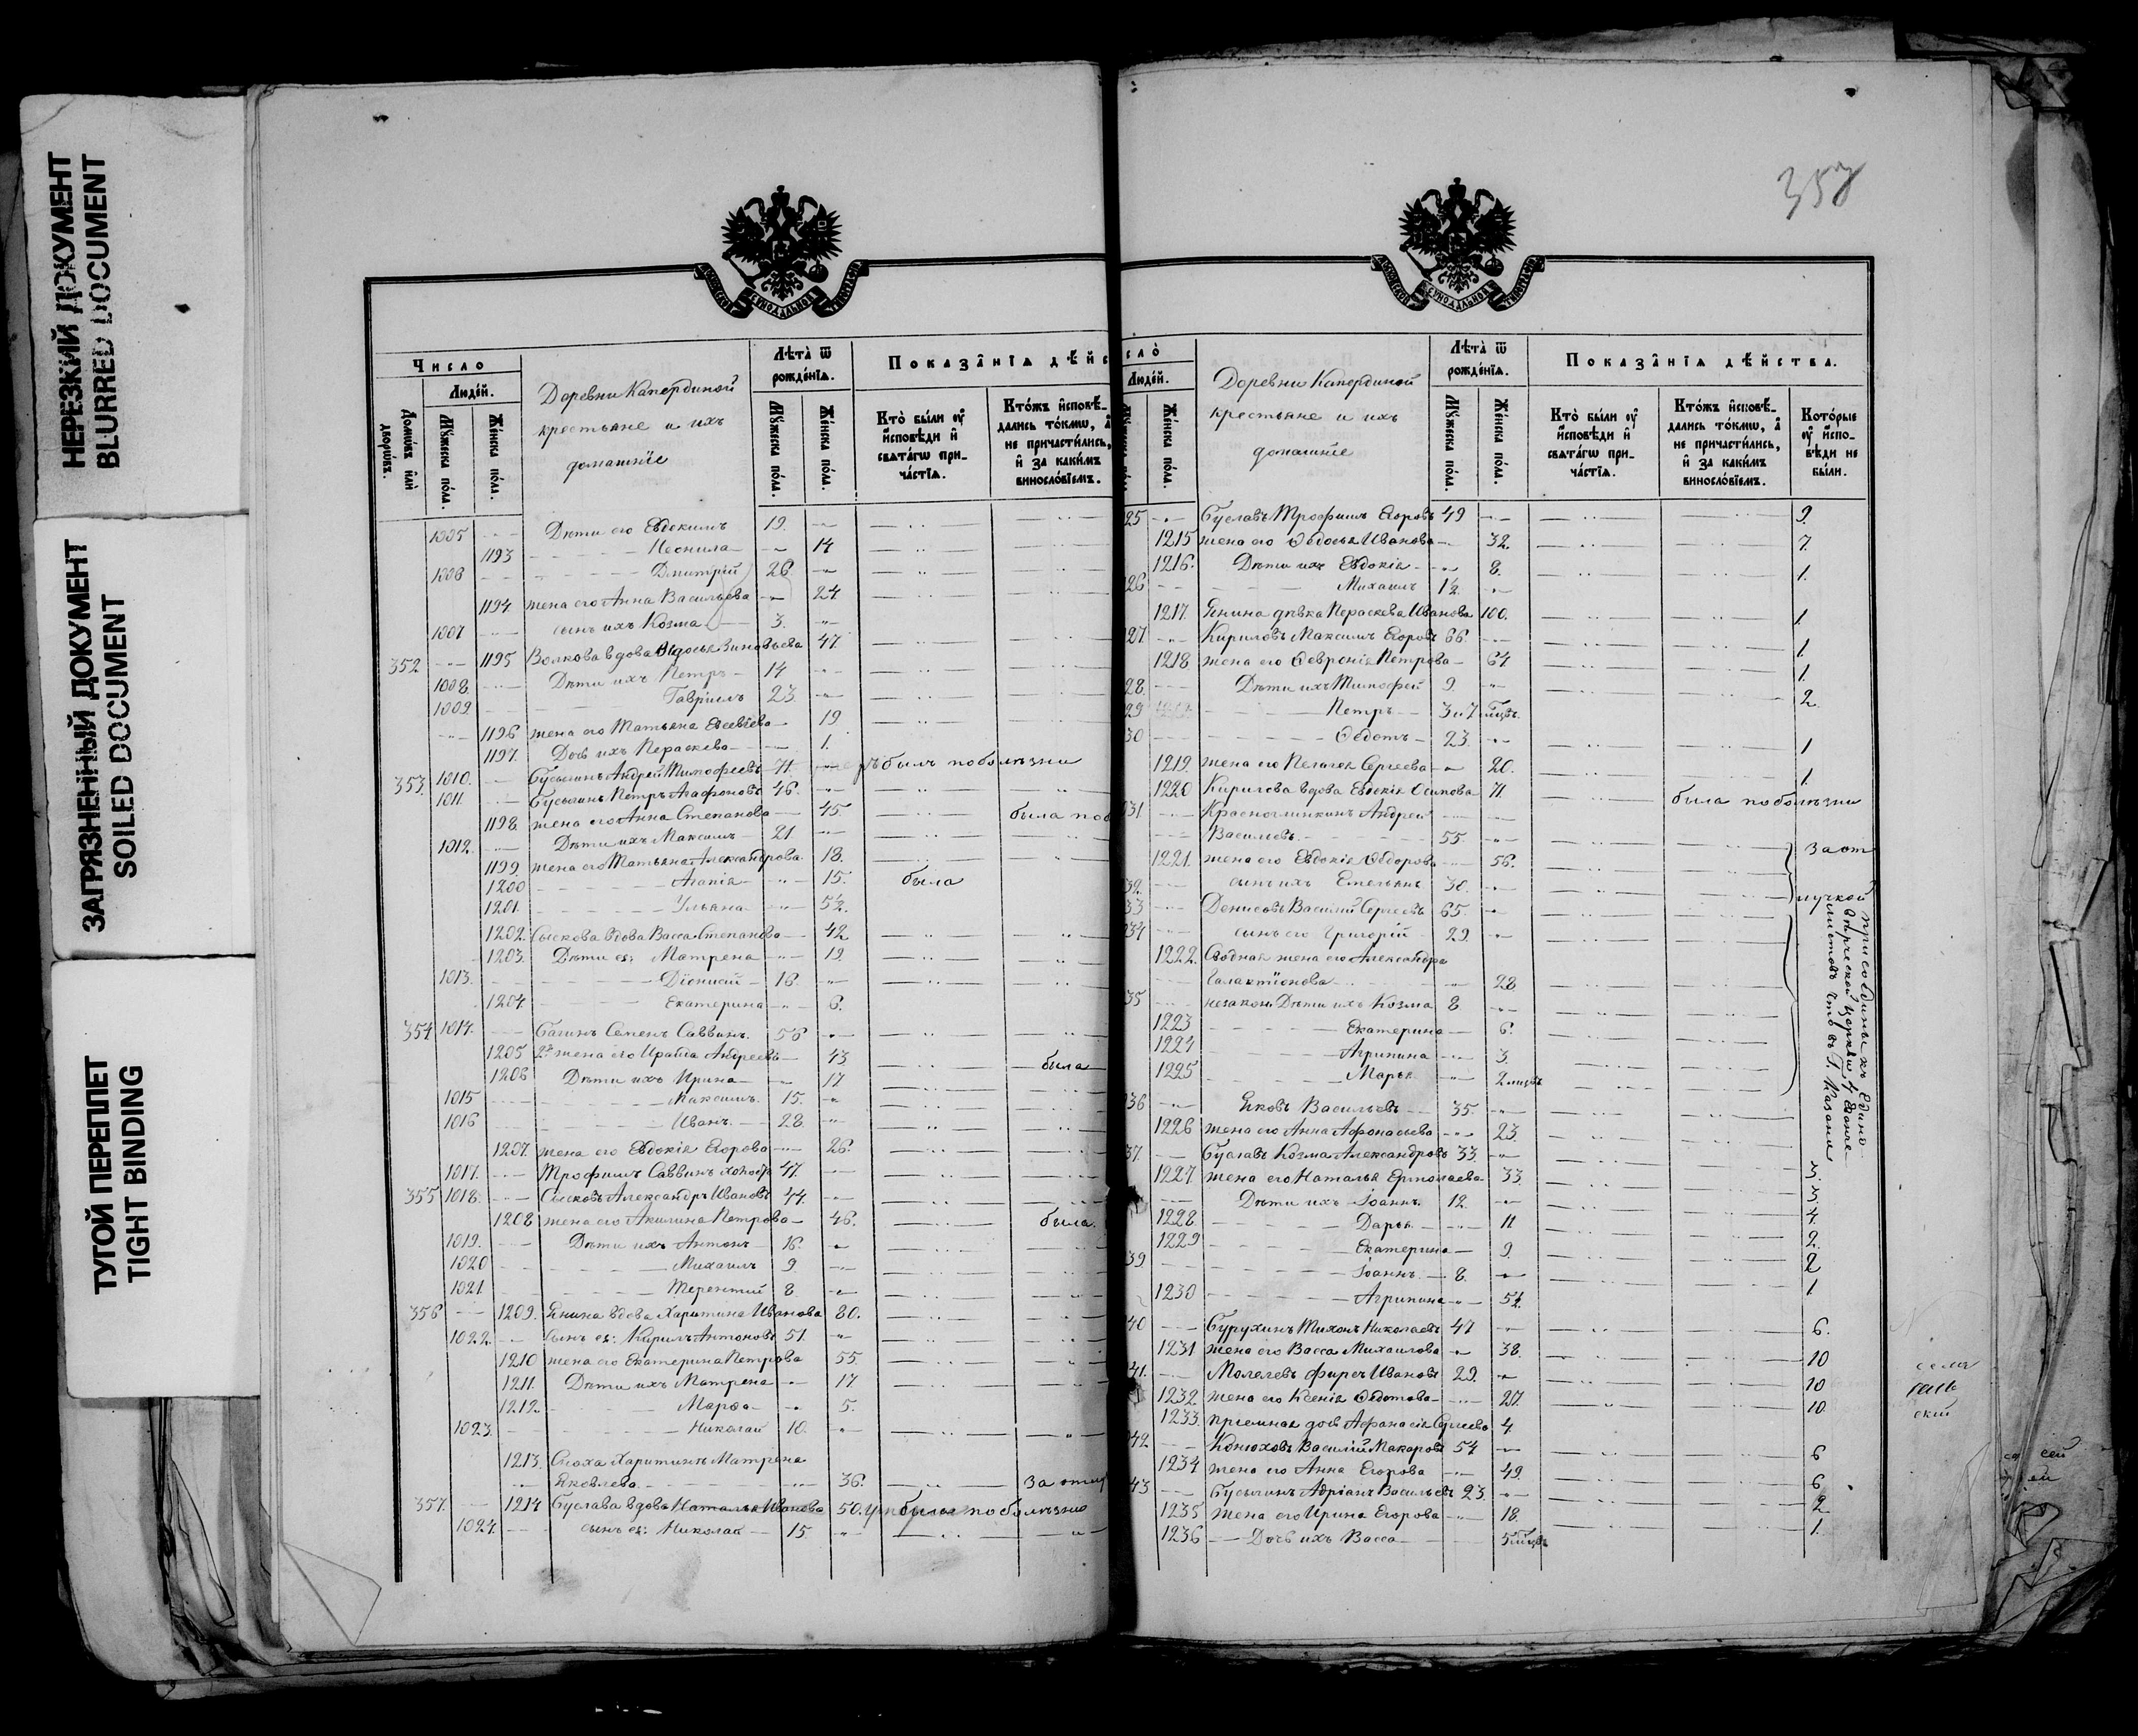 НЕРЕЗКИЙ ДОКУМЕНТ
BLURRED DOCUMENT
ЗАГРЯЗНЕННЫЙ ДОКУМЕНТ
SOILED DOCUMENT
ТУГОЙ ПЕРЕПЛЕТ
TIGHT BINDING
Число
Людей.
Домѡвъ или дворѡвъ.
Мꙋжеска пола.
Женска пола.
Деревни Капердиной
крестьяне и ихъ
домашніе
Лѣта ѿ рожденїѧ.
Мꙋжеска пола.
Женска пола.
Показанїѧ дѣйс
Кто были ᲂу҆ исповѣди и свѧтагѡ при-частїѧ.
Ктожъ исповѣ-дались токмѡ, а не причастились, и за какимъ винословїемъ.
1005 Дѣти его Евдокимъ 19.
1193 Неонила 14
1006 Дмитрій 26
1194 жена его Анна Васильева 24
1007 сынъ ихъ Козма 3.
352 1195 Волкова вдова Ѳедосья Зиновьева 47.
1008 Дѣти ихъ Петръ 14
1009 Гавріилъ 23.
1196 жена его Татьяна Евсевіева 19
1197. Дочь ихъ Параскева 1.
353. 1010. Бусыгинъ Андрей Тимофеевъ 71. былъ по болѣзни
1011. Бусыгинъ Петръ Агафоновъ 46.
1198 жена его Анна Степанова 45. была по б
1012. Дѣти ихъ Максимъ 21
1199 жена его Татьяна Александрова 18.
1200 Агапія 15. была
1201. Ульяна 5½.
1202. Сыскова вдова Васса Степанова 42
1203. Дѣти ея: Матрена 19
1013. Діонисій 16.
1204 Екатерина 6.
354 1014. Багинъ Семенъ Саввинъ 56
1205 2я жена его Ираида Андреева 43 была
1206 Дѣти ихъ Ирина 17
1015 Максимъ. 15.
1016 Иванъ. 22
1207. жена его Евдокія Егорова 26.
1017. Трофимъ Саввинъ холост 47.
355 1018. Сысковъ Александръ Ивановъ 44.
1208 жена его Акилина Петрова 46. была.
1019. Дѣти ихъ Антонъ 16.
1020 Михаилъ 9.
1021 Терентій 8
356 1209. Янина вдова Харитина Иванова 80.
1022. сынъ ея: Кирилъ Антоновъ 51.
1210 жена его Екатерина Петрова 55.
1211. Дѣти ихъ Матрена 17
1212 Марѳа 5.
1023. Николай 10.
1213. Сноха Харитины Матрена
Яковлева 36. За отлу
357. 1214 Буслава вдова Наталья Иванова 50. была по болѣзни
1024. сынъ ея: Николай 15.
357
сло
Людей.
Женска пола.
Деревни Капердиной
крестьяне и ихъ
домашніе
Лѣта ѿ рожденїѧ.
Мꙋжеска пола.
Женска пола.
Показанїѧ дѣйства.
Кто были ᲂу҆ исповѣди и свѧтагѡ при-частїѧ.
Ктожъ исповѣ-дались токмѡ, а не причастились, и за какимъ винословїемъ.
Которые ᲂу҆ испо-вѣди не были.
25 Буславъ Трофимъ Егоровъ 49 9.
1215 жена его Ѳедосья Иванова 32. 7.
1216. Дѣти ихъ Евдокія 8. 1.
26 Михаилъ 1½
1217. Янина дѣвка Параскева Иванова 100. 1
27 Кириловъ Максимъ Егоровъ 66. 1.
1218 жена его Ѳевронія Петрова 64 1.
28. Дѣти ихъ Тимофей 9 2
29 Петръ 3 и 7 мцвъ.
30 Ѳедотъ 23. 1
1219. жена его Пелагея Сергеева 20. 1
1220 Кирилова вдова Евдокія Осипова 71. была по болѣзни
031 Красноглинкинъ Андрей
Васильевъ 55. За от
1221. жена его Евдокія Ѳедорова 56.
32. сынъ ихъ Емельянъ 30. лучкой
33 Денисовъ Василій Сергеевъ 65.
034 сынъ его Григорій 29.
1222. Сводная жена его Александра
Галактіонова 28
35 незакон. Дѣти ихъ Козма 8
1223 Екатерина 6.
1224 Агрипина 3.
1225 Марья 2 мцвъ
присоединены къ Едино
вѣрческой церкви
въ г. Казани
36 Яковъ Васильевъ 35.
1226 жена его Анна Афонасьева 23.
37. Буславъ Козма Александровъ 33. 3.
1227 жена его Наталья Ермолаева 33 3.
Дѣти ихъ Іоаннъ 12. 4.
1228. Дарья 11 2.
1229 Екатерина 9 2
39 Іоаннъ 8. 1
1230 Агрипина 5½.
40 Бурухинъ Тихонъ Николаевъ 47 6.
1231 жена его Васса Михаилова 38. 10
41. Ивановъ 29. 10
1232 жена его Ксенія Ѳедотова 27. 10
1233. приемная дочь Афанасія Сергеева 4
042 Конюховъ Василій Макаровъ 54 6
1234 жена его Анна Егорова 49 6
43 Бусыгинъ Адріанъ Васильевъ 23. 2
1235 жена его Ирина Егорова 18. 1.
1236 Дочь ихъ Васса 5 мцвъ